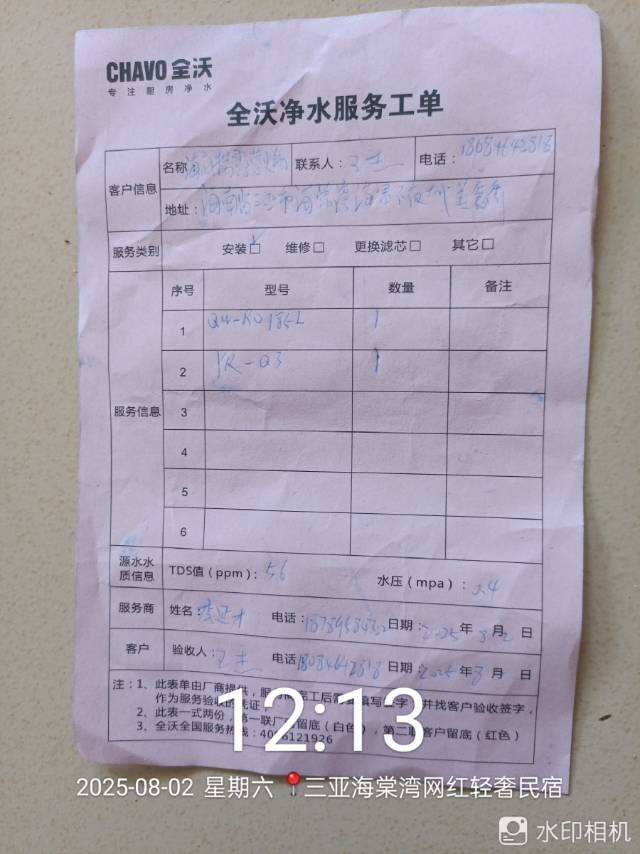 CHAVO 全沃
专注厨房净水
全沃净水服务工单
客户信息 名称 联系人：王杰 电话：18084642818
地址：海南省三亚市海棠湾
服务类别 安装☑ 维修□ 更换滤芯□ 其它□
服务信息 序号 型号 数量 备注
1 1
2 YR-Q3 1
3
4
5
6
源水水质信息 TDS值（ppm）：56 水压（mpa）：0.4
服务商 姓名： 电话： 日期：2025年8月2日
客户 验收人：王杰 电话 18084642818 日期：2025年8月 日
注：1、此表单由厂商提供，服务商完工后需要填写 字，并找客户验收签字，
作为服务验收的凭证
2、此表一式两份，第一联厂商留底（白色），第二联客户留底（红色）
3、全沃全国服务热线：4006121926
12:13
2025-08-02 星期六 三亚海棠湾网红轻奢民宿
水印相机